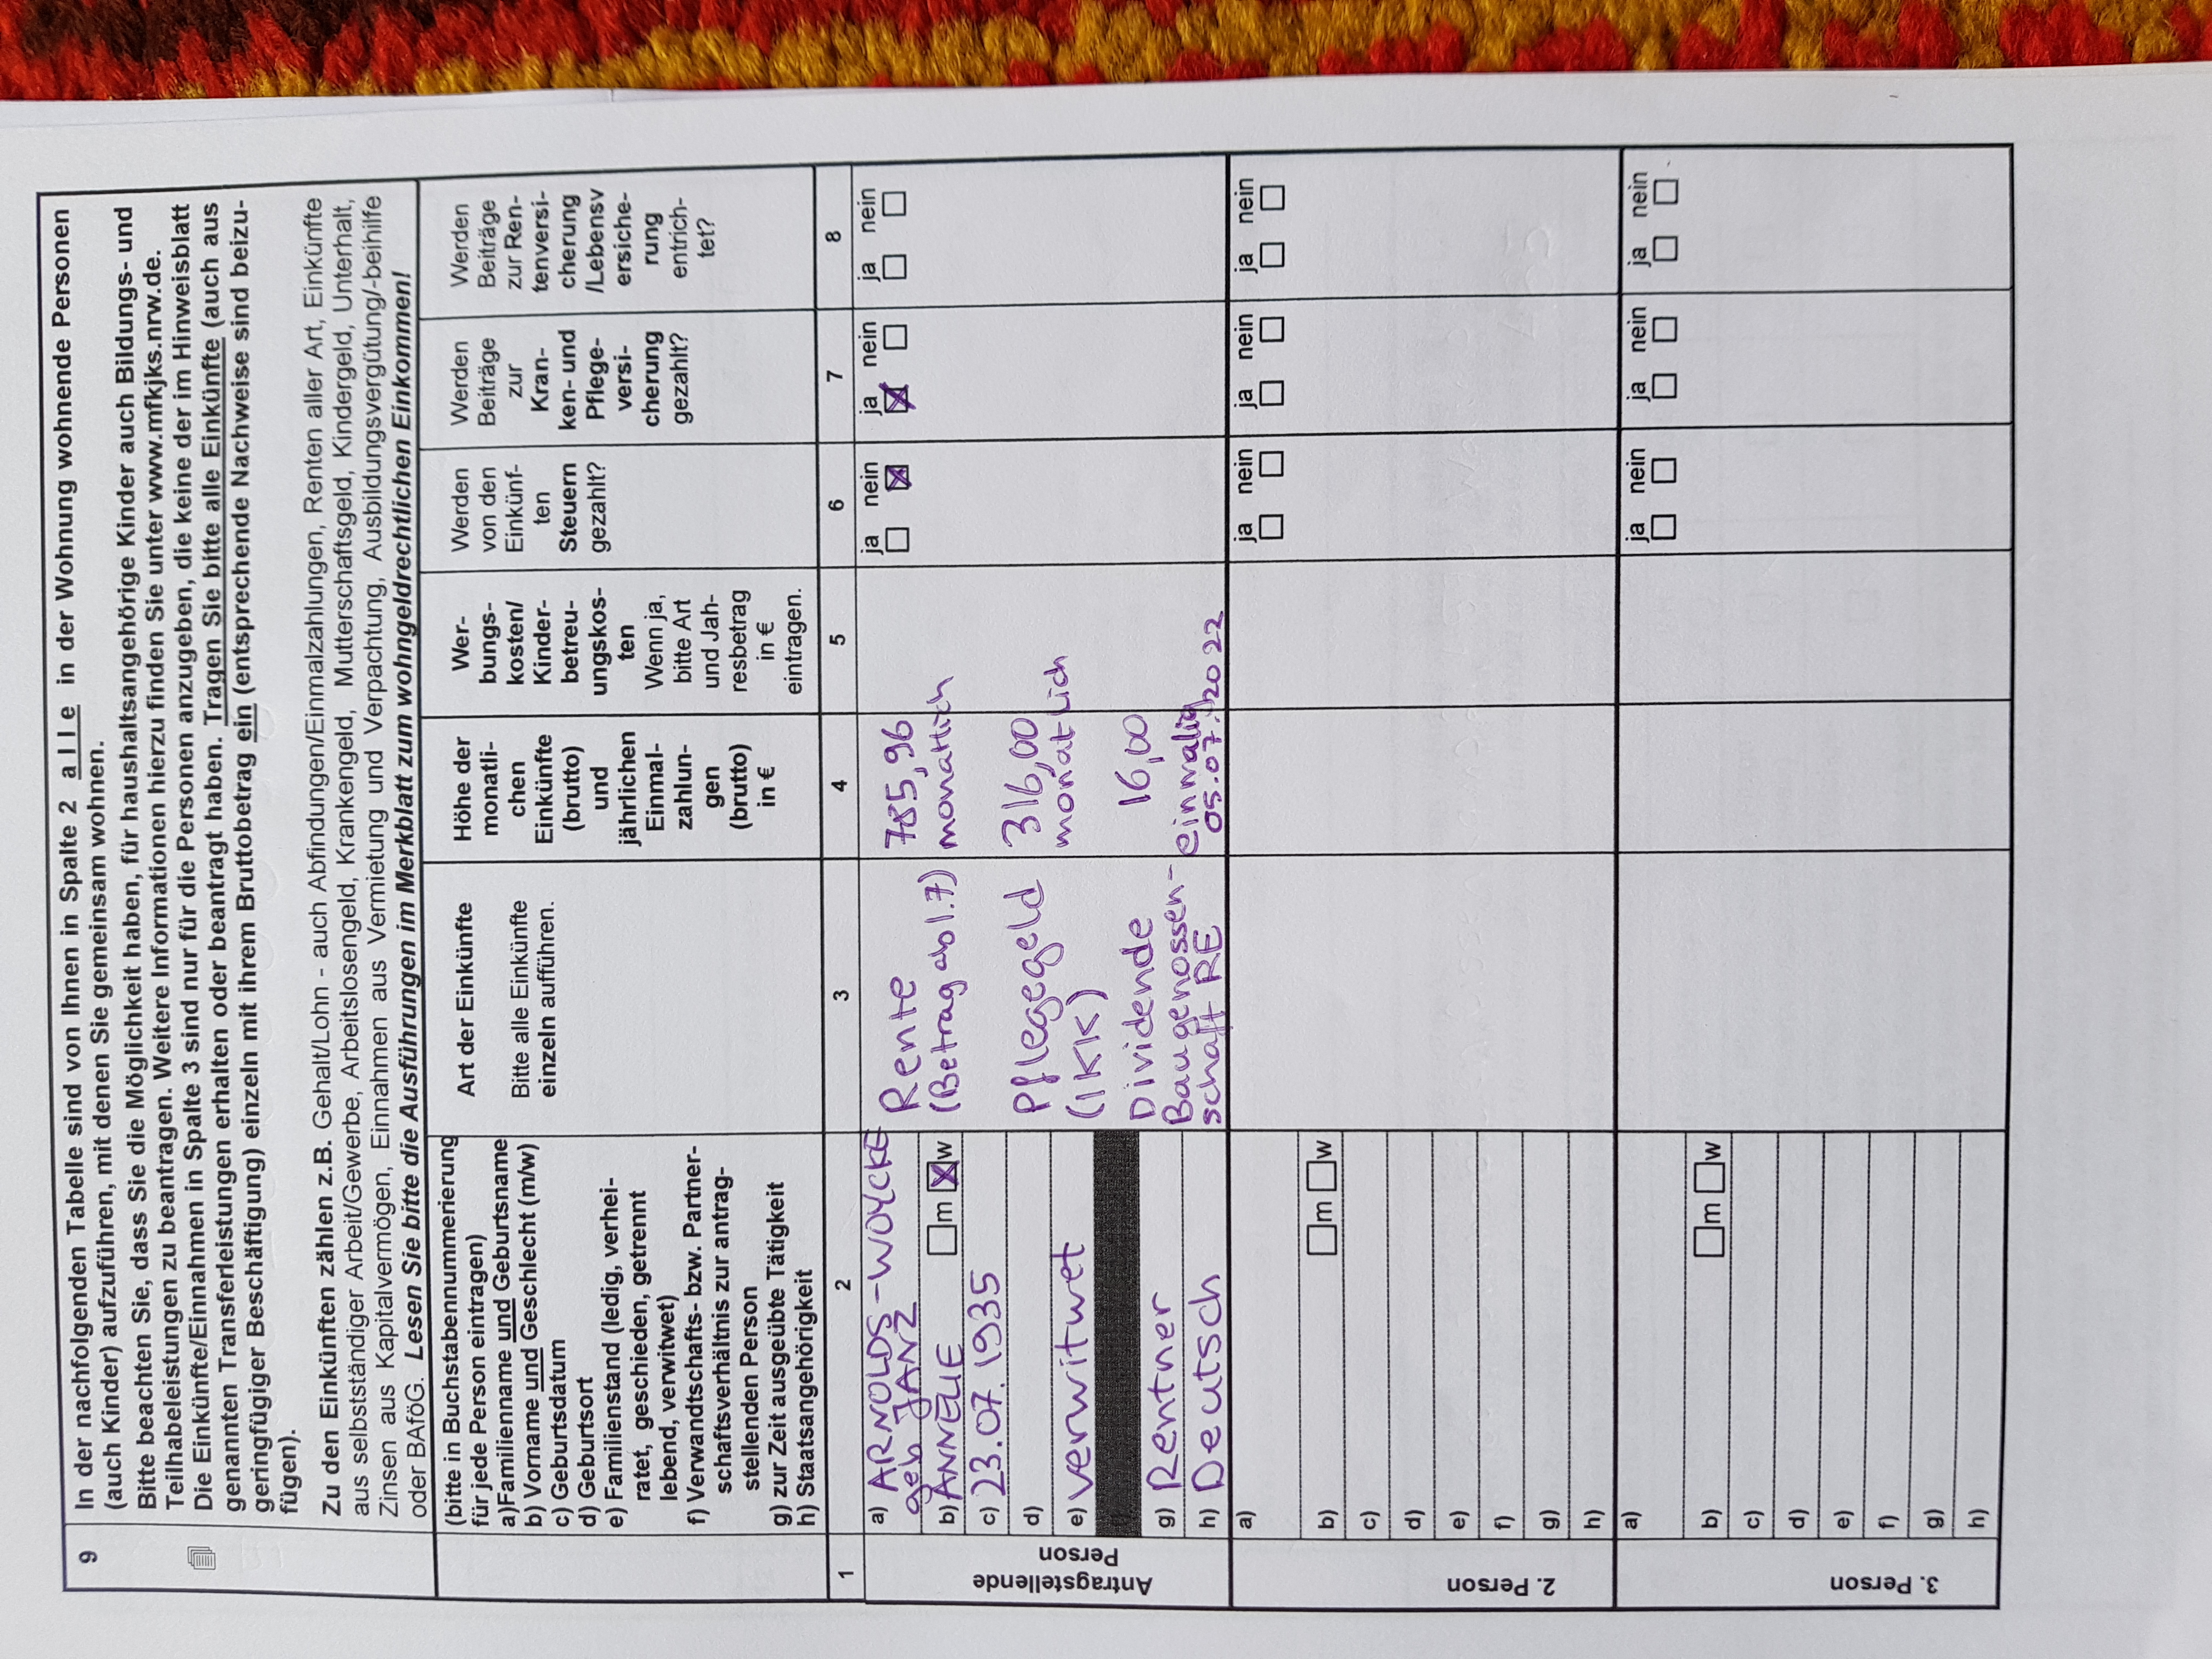 9 In der nachfolgenden Tabelle sind von Ihnen in Spalte 2 alle in der Wohnung wohnende Personen
(auch Kinder) aufzuführen, mit denen Sie gemeinsam wohnen.
Bitte beachten Sie, dass Sie die Möglichkeit haben, für haushaltsangehörige Kinder auch Bildungs- und
Teilhabeleistungen zu beantragen. Weitere Informationen hierzu finden Sie unter www.mfkjks.nrw.de.
Die Einkünfte/Einnahmen in Spalte 3 sind nur für die Personen anzugeben, die keine der im Hinweisblatt
genannten Transferleistungen erhalten oder beantragt haben. Tragen Sie bitte alle Einkünfte (auch aus
geringfügiger Beschäftigung) einzeln mit ihrem Bruttobetrag ein (entsprechende Nachweise sind beizu-
fügen).
Zu den Einkünften zählen z.B. Gehalt/Lohn - auch Abfindungen/Einmalzahlungen, Renten aller Art, Einkünfte
aus selbstständiger Arbeit/Gewerbe, Arbeitslosengeld, Krankengeld, Mutterschaftsgeld, Kindergeld, Unterhalt,
Zinsen aus Kapitalvermögen, Einnahmen aus Vermietung und Verpachtung, Ausbildungsvergütung/-beihilfe
oder BAföG. Lesen Sie bitte die Ausführungen im Merkblatt zum wohngeldrechtlichen Einkommen!
(bitte in Buchstabennummerierung
für jede Person eintragen)
a)Familienname und Geburtsname
b) Vorname und Geschlecht (m/w)
c) Geburtsdatum
d) Geburtsort
e) Familienstand (ledig, verhei-
ratet, geschieden, getrennt
lebend, verwitwet)
f) Verwandtschafts- bzw. Partner-
schaftsverhältnis zur antrag-
stellenden Person
g) zur Zeit ausgeübte Tätigkeit
h) Staatsangehörigkeit
Art der Einkünfte
Bitte alle Einkünfte
einzeln aufführen.
Höhe der
monatli-
chen
Einkünfte
(brutto)
und
jährlichen
Einmal-
zahlun-
gen
(brutto)
in €
Wer-
bungs-
kosten/
Kinder-
betreu-
ungskos-
ten
Wenn ja,
bitte Art
und Jah-
resbetrag
in €
eintragen.
Werden
von den
Einkünf-
ten
Steuern
gezahlt?
Werden
Beiträge
zur
Kran-
ken- und
Pflege-
versi-
cherung
gezahlt?
Werden
Beiträge
zur Ren-
tenversi-
cherung
/Lebensv
ersiche-
rung
entrich-
tet?
1 2 3 4 5 6 7 8
Antragstellende
Person
a) ARNOLDS-WOYCKE
geb JANZ
b) ANNELIE m w
c) 23.07.1935
d)
e) verwitwet
g) Rentner
h) Deutsch
Rente
(Betrag ab 1.7)
Pflegegeld
(IKK)
Dividende
Baugenossen-
schaft RE
785,96
monatlich
316,00
monatlich
16,00
einmalig
05.07.2022
ja nein
ja nein
ja nein
2. Person
a)
b) m w
c)
d)
e)
f)
g)
h)
ja nein
ja nein
ja nein
3. Person
a)
b) m w
c)
d)
e)
f)
g)
h)
ja nein
ja nein
ja nein